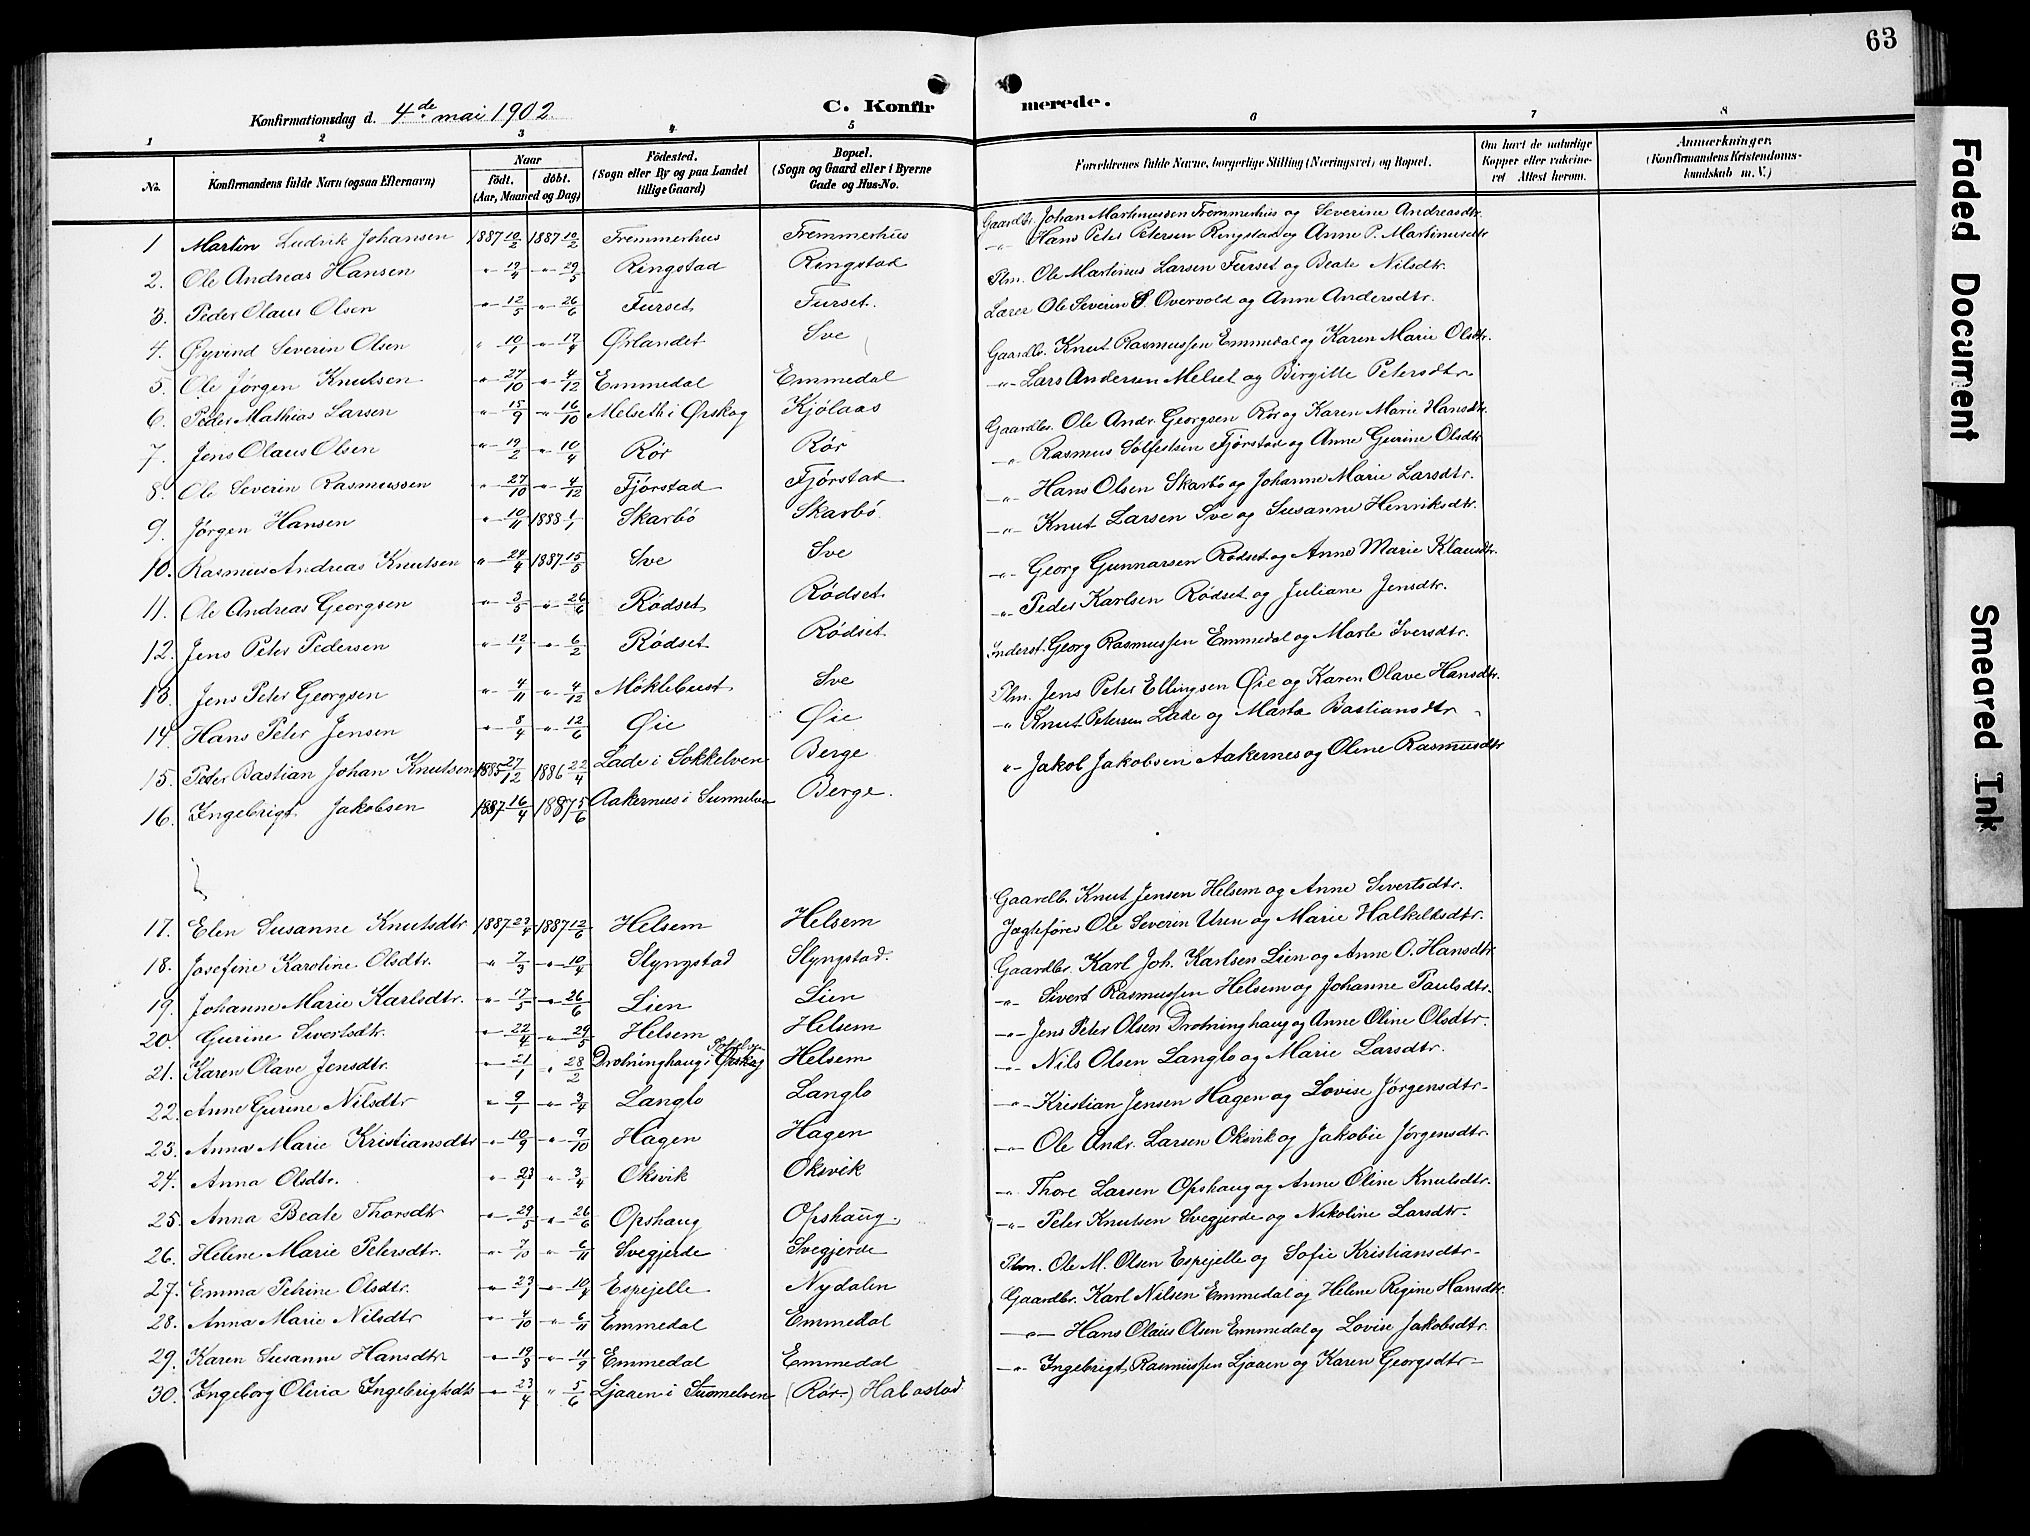 63
C. Konfirmerede.
Konfirmationsdag d. 4de mai 1902.
1 2 3 4 5 6 7 8
No. Konfirmandens fulde Navn (ogsaa Efternavn) Naar födt. döbt. (Aar, Maaned og Dag) Födested. (Sogn eller By og paa Landet tillige Gaard) Bopæl. (Sogn og Gaard eller i Byerne Gade og Hus-No. Forældrenes fulde Navne, borgerlige Stilling (Næringsvei) og Bopæl. Om havt de naturlige Kopper eller vakcineret Attest herom. Anmærkninger. (Konfirmandens Kristendomskundskab m. V.)
1 Martin Ludvik Johansen 1887 10/2 1887 10/2 Fremmerhus Fremmerhus Gaardbr. Johan Martinussen Fremmerhus og Severine Andreasdtr.
2. Ole Andreas Hansen " 19/4 " 29/5 Ringstad Ringstad " Hans Peter Petersen Ringstad og Anne P. Martinusdtr
3. Peder Olaus Olsen " 12/5 " 26/6 Furset Furset. Plm. Ole Martinus Larsen Furset og Beate Nilsdtr.
4. Øyvind Severin Olsen " 10/1 " 17/4 Ørlandet Sve Lærer Ole Severin S. Overvold og Anne Andersdtr.
5. Ole Jørgen Knutsen " 27/10 " 4/12 Emmedal Emmedal Gaardbr. Knut Rasmussen Emmedal og Karen Marie Olsdtr.
6. Peder Mathias Larsen " 15/9 " 16/10 Melseth i Ørskog Kjølaas " Lars Andersen Melset og Birgitte Petersdtr
7. Jens Olaus Olsen " 19/2 " 10/4 Rør Rør Gaardbr. Ole Andr. Georgsen Rør og Karen Marie Hansdtr.
8. Ole Severin Rasmussen " 27/10 " 4/12 Fjørstad Fjørstad " Rasmus Solfestsen Fjørstad og Anne Gurine Olsdtr
9. Jørgen Hansen " 10/11 1888 1/1 Skarbö Skarbö. " Hans Olsen Skarbö og Johanne Marie Larsdtr.
10. Rasmus Andreas Knutsen " 24/4 1887 15/5 Sve Sve " Knut Larsen Sve og Susanne Henriksdtr.
11. Ole Andreas Georgsen " 3/5 " 26/6 Rödset Rödset " Georg Gunnarsen Rödset og Anne Marie Klausdtr.
12. Jens Peter Pedersen " 12/1 " 6/2 Rödset Rödset " Peder Karlsen Rödset og Juliane Jensdtr.
13. Jens Peter Georgsen " 4/11 " 4/12 Møklebust Sve Inderst. Georg Rasmussen Emmedal og Marte Iversdtr.
14. Hans Peter Jensen " 8/4 " 12/6 Øie Øie Plm. Jens Peter Ellingsen Øie og Karen Olave Hansdtr.
15. Peder Bastian Johan Knutsen 1885 27/12 1886 22/4 Lade i Sokkelven Berge " Knut Petersen Lade og Marta Bastiansdtr
16. Ingebrigt Jakobsen 1887 16/4 1887 5/6 Aakernes i Sunnelven Berge. " Jakob Jakobsen Aakernes og Oline Rasmusdtr
17. Elen Susanne Knutsdtr 1887 23/4 1887 12/6 Helsem Helsem Gaardb. Knut Jensen Helsem og Anne Sivertsdtr.
18. Josefine Karoline Olsdtr. " 7/3 " 10/4 Slyngstad Slyngstad. Jagtefører Ole Severin Uren og Marie Halkiltsdtr.
19. Johanne Marie Karlsdtr. " 17/5 " 26/6 Lien Lien Gaardbr. Karl Joh. Karlsen Lien og Anne O. Hansdtr.
20. Gurine Sivertsdtr. " 22/4 " 29/5 Helsem Helsem " Sivert Rasmussen Helsem og Johanne Paulsdtr.
21. Karen Olave Jensdtr. " 21/1 " 28/2 Drotninghaug i Ørskog Helsem " Jens Peter Olsen Drotninghaug og Anne Oline Olsdtr.
22. Anne Gurine Nilsdtr " 9/1 " 3/4 Langlo Langlo " Nils Olsen Langlo og Marie Larsdtr.
23. Anna Marie Kristiansdtr " 10/9 " 9/10 Hagen Hagen " Kristian Jensen Hagen og Lovise Jørgensdtr
24. Anna Olsdtr. " 23/1 " 3/4 Oksvik Oksvik " Ole Andr. Larsen Oksvik og Jakobie Jørgensdtr.
25. Anna Beate Thorsdtr " 29/5 " 26/6 Opshaug Opshaug. " Thore Larsen Opshaug og Anne Oline Knutsdtr.
26. Heline Marie Petersdtr. " 7/10 " 6/11 Svegjerde Svegjerde " Peter Knutsen Svegjerde og Nikoline Larsdtr.
27. Emma Petrine Olsdtr. " 23/1 " 10/4 Espejelle Nydalen Plm. Ole M. Olsen Espejelle og Sofie Kristiansdtr
28. Anna Marie Nilsdtr " 4/10 " 6/11 Emmedal Emmedal Gaardbr. Karl Nilsen Emmedal og Helene Regine Hansdtr.
29. Karen Susanne Hansdtr " 19/8 " 11/9 Emmedal Emmedal " Hans Olaus Olsen Emmedal og Lovise Jakobsdtr.
30. Ingeborg Oliria Ingebrigtsdtr " 23/4 " 5/6 Ljøaen i Sunnelven (Rør) Habostad " Ingebrigt Rasmussen Ljøaen og Karen Georgsdtr
Faded Document
Smeared Ink